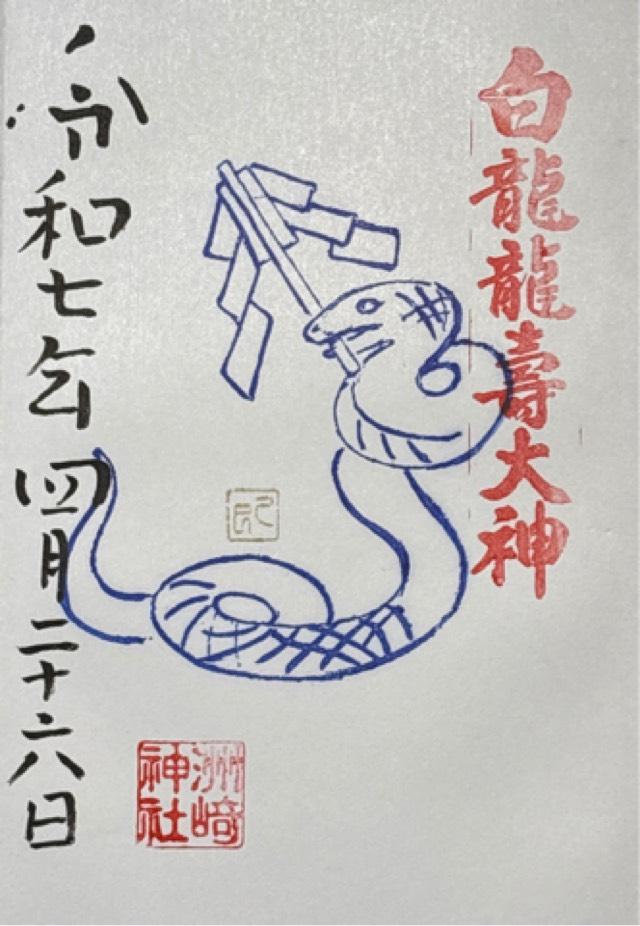 白龍龍壽大神
印
洲崎
神社
令和七年四月二十六日